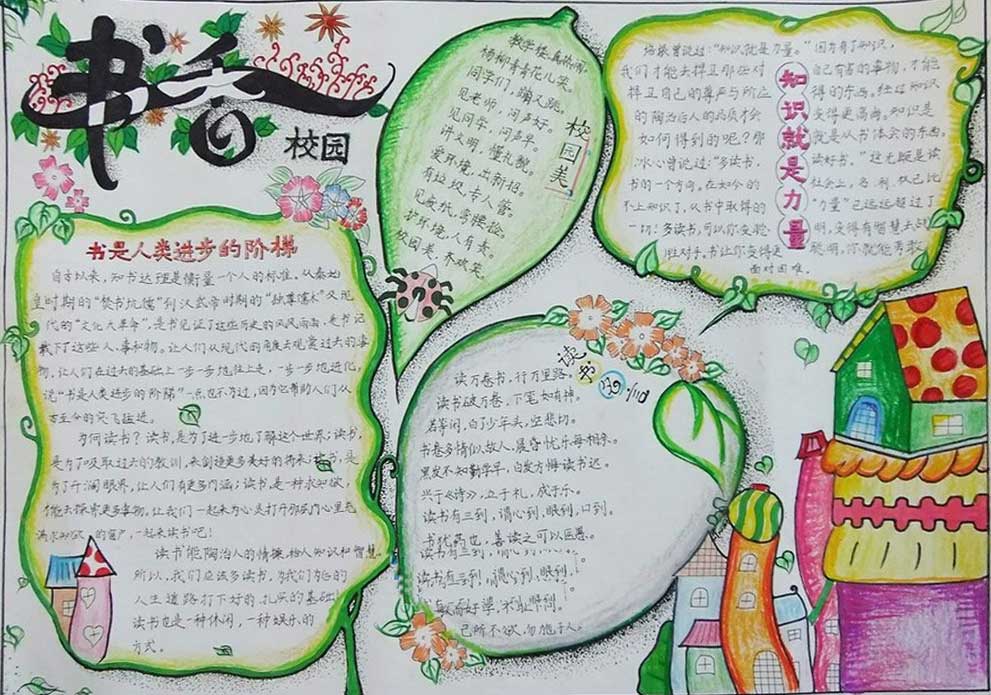 书香
校园
书是人类进步的阶梯
自古以来，知书达理是衡量一个人的标准，从秦始
皇时期的“焚书坑儒”到汉武帝时期的“独尊儒术”又现
代的“文化大革命”，是书见证了这些历史的风风雨雨，是书记
载下了这些人、事和物。让人们从现代的角度去观赏过去的事
物，让人们在过去的基础上一步一步地往上走，一步一步地进化，
说“书是人类进步的阶梯”一点也不为过，因为它帮助人们从
古至今的突飞猛进。
为何读书？读书，是为了进一步地了解这个世界；读书，
是为了吸取过去的教训，来创造更多美好的将来；读书，是
为了开阔眼界，让人们有更多内涵；读书，是一种求知欲，
才能去探索更多事物。让我们一起来为心灵打开那
满求知欲的窗户，一起来读书吧！
读书能陶冶人的情操，给人知识和智慧。
所以，我们应该多读书，为我们的
人生道路打下好的、扎实的基础！
读书也是一种休闲，一种娱乐的
方式。
校园美
教学楼，真
杨柳青青花儿笑。
同学们，蹦又跳，
见老师，问声好。
见同学，问声早。
讲文明，懂礼貌，
爱环境，出新招。
有垃圾，专人管。
见废纸，弯腰捡。
护环境，人有责。
校园美，齐欢笑。
知识就是力量
培根曾说过：“知识就是力量。”因为有了知识，
我们才能去捍卫那些对自己有害的事物，才能
捍卫自己的尊严与所应得的东西。经过知识
的陶冶后人的品质才会变得更高尚。知识是
如何得到的呢？那就是从书体会的东西。
冰心曾说过：“多读书，读好书。”这无疑是读
书的一个方向。在如今的社会上，名、利、权已比
不上知识了，从书中取得的“力量”已远远超过了一
切！多读书，可以你变聪明，变得有智慧去战
胜对手。书让你变得更聪明，你就能勇敢
面对困难。
读书名句
读万卷书，行万里路。
读书破万卷，下笔如有神。
若等闲，白了少年头，空悲切。
书卷多情似故人，晨昏忧乐每相亲。
黑发不知勤学早，白发方悔读书迟。
兴于《诗》，立于礼，成于乐。
读书有三到，谓心到，眼到，口到。
书犹药也，善读之可以医愚。
读书有三到，谓心到，
读书有三到，谓心到，眼到，
敏而好学，不耻下问。
己所不欲，勿施于人。